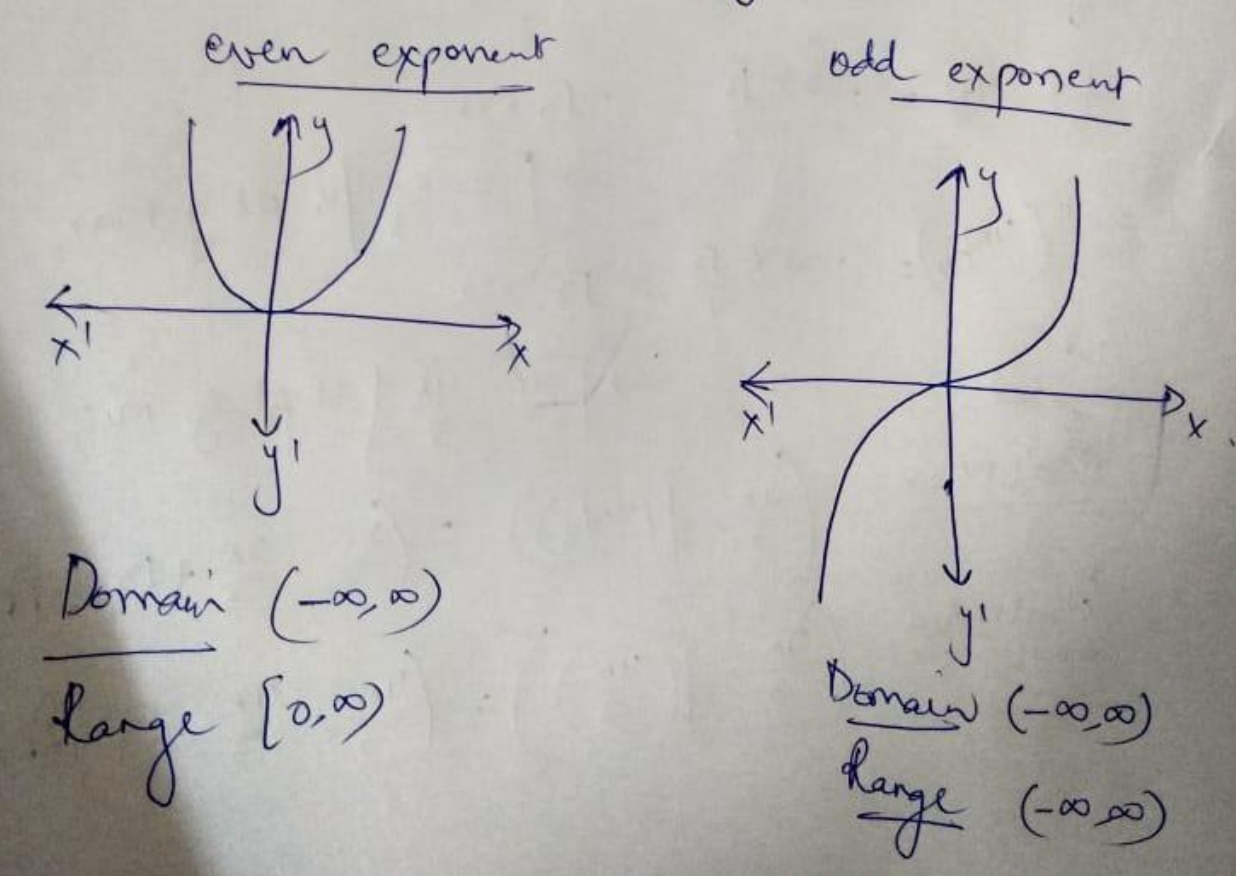 even exponent
y
x'
x
y'
Domain (-∞,∞)
Range [0,∞)
odd exponent
y
x'
x
y'
Domain (-∞,∞)
Range (-∞,∞)